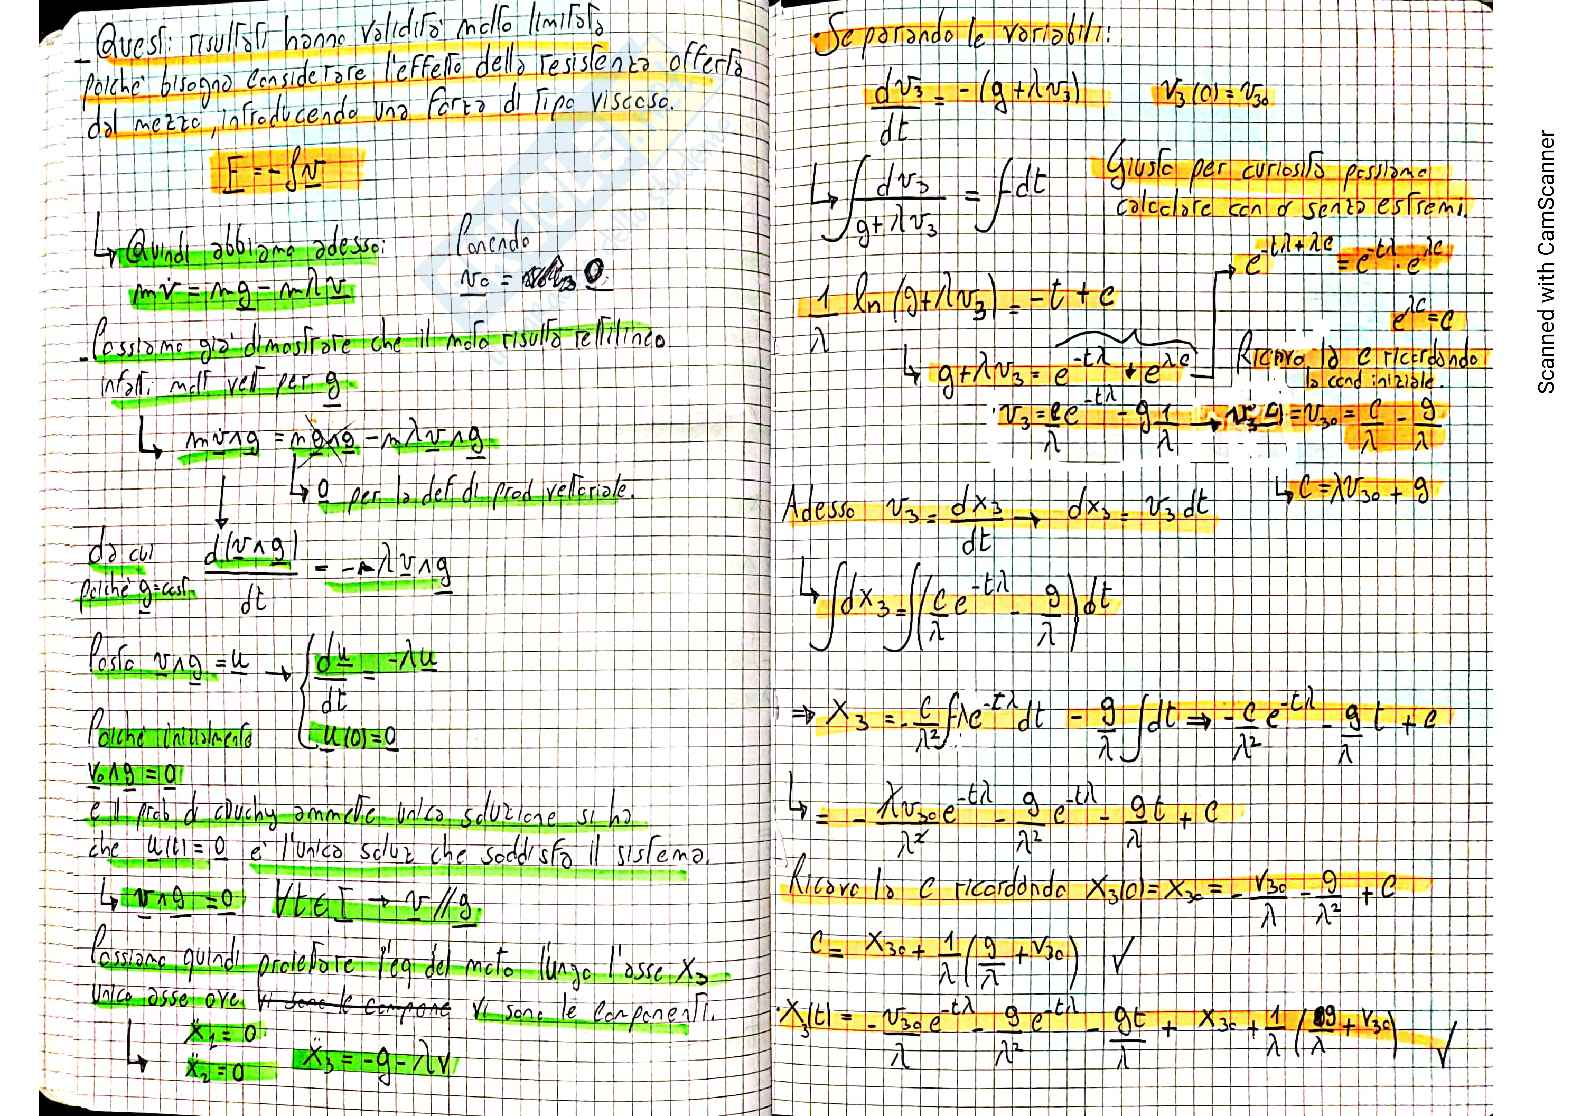 - Questi risultati hanno validità molto limitata
poiché bisogna considerare l'effetto della resistenza offerta
dal mezzo, introducendo una forza di tipo viscoso.
F = -ʃv
↳ Quindi abbiamo adesso:
mv̇ = mg - mλv
Ponendo
v₀ = 0
- Possiamo già dimostrare che il moto risulta rettilineo
infatti molt vett per g
↳ mv̇∧g = mg∧g - mλv∧g
↳ 0 per la def di prod vettoriale.
da cui
poiché g=cost.
d(v∧g)/dt = -λv∧g
Posto v∧g = u → { du/dt = -λu
u(0)=0
Poiché inizialmente
v₀∧g = 0
e il prob di cauchy ammette unica soluzione si ha
che u(t)=0 è l'unica soluz che soddisfa il sistema.
↳ v∧g = 0 ∀t∈I → v // g
Possiamo quindi proiettare l'eq del moto lungo l'asse x₃
unico asse ove vi sono le componenti.
↳ ẍ₁ = 0
ẍ₂ = 0
ẍ₃ = -g - λv
Separando le variabili:
dv₃/dt = -(g+λv₃) v₃(0) = v₃₀
↳ ∫ dv₃/(g+λv₃) = ∫-dt
Giusto per curiosità possiamo
calcolare con o senza estremi.
1/λ ln(g+λv₃) = -t + c
e^(-tλ+λc) = e^(-tλ) · e^(λc)
e^(λc) = c
↳ g+λv₃ = e^(-tλ) + e^(λc)
Ricavo la c ricordando
la cond iniziale.
v₃ = c/λ e^(-tλ) - g 1/λ → v₃(0) = v₃₀ = c/λ - g/λ
↳ C = λv₃₀ + g
Adesso v₃ = dx₃/dt → dx₃ = v₃ dt
↳ ∫dx₃ = ∫(c/λ e^(-tλ) - g/λ) dt
⇒ x₃ = -c/λ² ∫-λe^(-tλ) dt - g/λ ∫dt ⇒ -c/λ² e^(-tλ) - g/λ t + c
↳ = - λv₃₀e^(-tλ)/λ² - g/λ² e^(-tλ) - gt/λ + c
Ricavo la C ricordando x₃(0) = x₃₀ = - v₃₀/λ - g/λ² + C
C = x₃₀ + 1/λ (g/λ + v₃₀) ✓
x₃(t) = - v₃₀e^(-tλ)/λ - g/λ² e^(-tλ) - gt/λ + x₃₀ + 1/λ (g/λ + v₃₀) ✓
Scanned with CamScanner